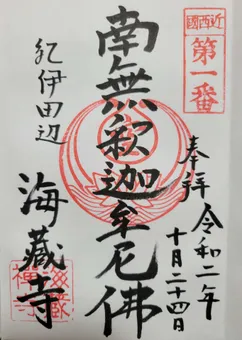 近西國
第一番
奉拝
令和二年
十月二十四日
南無釈迦牟尼佛
紀伊田辺
海蔵寺
海蔵禅寺